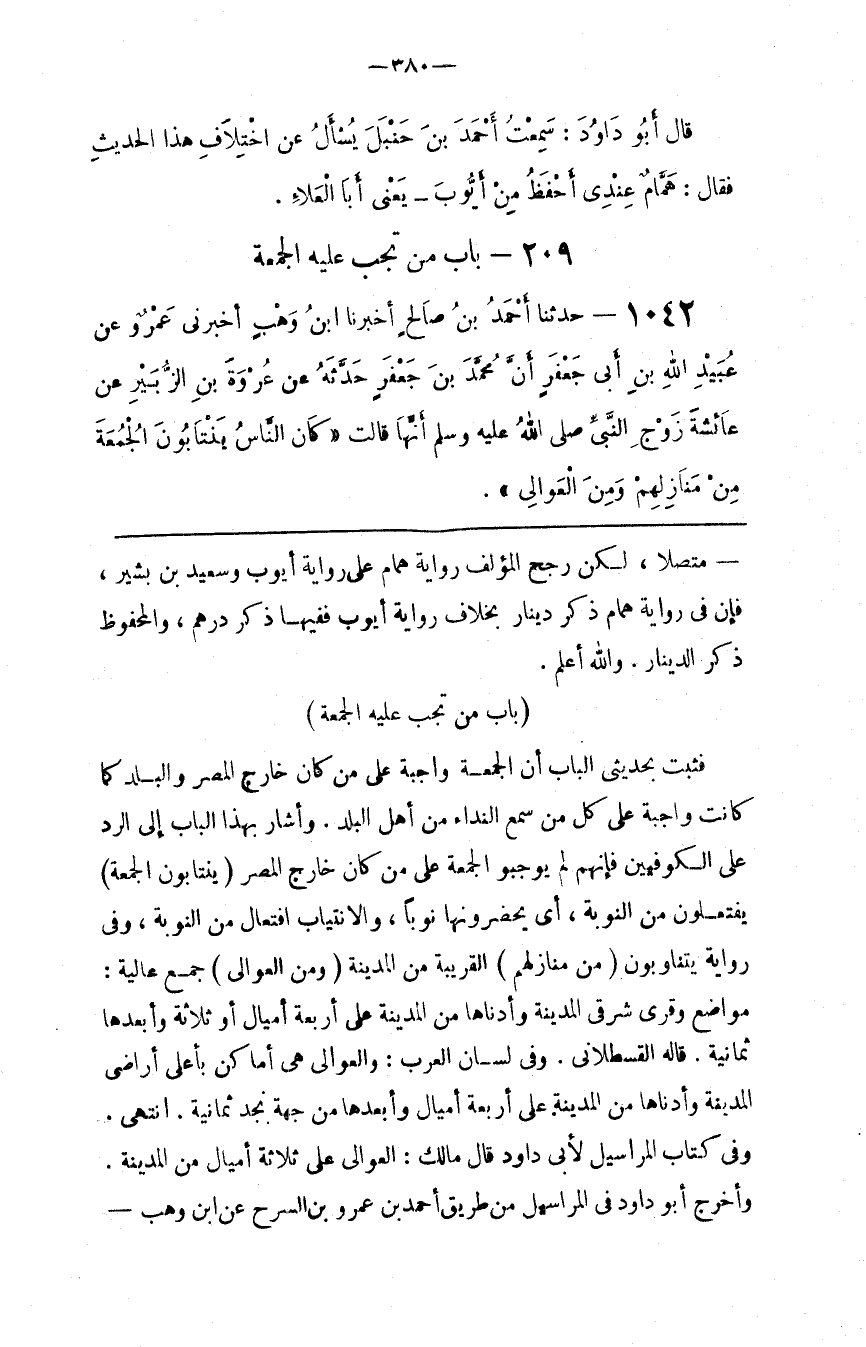 —٣٨٠—
قال أَبُو دَاوُدَ : سَمِعْتُ أَحْمَدَ بنَ حَنْبَلَ يُسْأَلُ عن اخْتِلاَفِ هذا الحديثِ
فقال : هَمَّامٌ عِنْدِى أَحْفَظُ مِنْ أَيُّوبَ ـ يَعْنى أَبَا الْعَلاءِ .
٢٠٩ – باب من تجب عليه الجمعة
١٠٤٢ – حدثنا أَحْمَدُ بنُ صَالحٍ أخبرنا ابنُ وَهْبٍ أخبرنى عَمْرٌو عن
عُبَيْدِ اللهِ بنِ أَبى جَعْفَرٍ أَنَّ مُحمَّدَ بنَ جَعْفَرٍ حَدَّثَهُ عن عُرْوَةَ بنِ الزُّبَيْرِ عن
عَائشةَ زَوْجِ النَّبىِّ صلى اللهُ عليه وسلم أَنَّهَا قالت « كَان النَّاسُ يَنْتَابُونَ الْجُمُعَةَ
مِنْ مَنَازِلِهِمْ وَمِنَ الْعَوالِى » .
— متصلا ، لكن رجح المؤلف رواية همام على رواية أيوب وسعيد بن بشير ،
فإن فى رواية همام ذكر دينار بخلاف رواية أيوب ففيها ذكر درهم ، والمحفوظ
ذكر الدينار . والله أعلم .
( باب من تجب عليه الجمعة )
فثبت بحديثى الباب أن الجمعة واجبة على من كان خارج المصر والبلد كما
كانت واجبة على كل من سمع النداء من أهل البلد . وأشار بهذا الباب إلى الرد
على الكوفيين فإنهم لم يوجبو الجمعة على من كان خارج المصر ( ينتابون الجمعة )
يفتعلون من النوبة ، أى يحضرونها نوباً ، والانتياب افتعال من النوبة ، وفى
رواية يتناوبون ( من منازلهم ) القريبة من المدينة ( ومن العوالى ) جمع عالية :
مواضع وقرى شرقى المدينة وأدناها من المدينة على أربعة أميال أو ثلاثة وأبعدها
ثمانية . قاله القسطلانى . وفى لسان العرب : والعوالى هى أماكن بأعلى أراضى
المدينة وأدناها من المدينة على أربعة أميال وأبعدها من جهة نجد ثمانية . انتهى .
وفى كتاب المراسيل لأبى داود قال مالك : العوالى على ثلاثة أميال من المدينة .
وأخرج أبو داود فى المراسيل من طريق أحمد بن عمرو بن السرح عن ابن وهب —